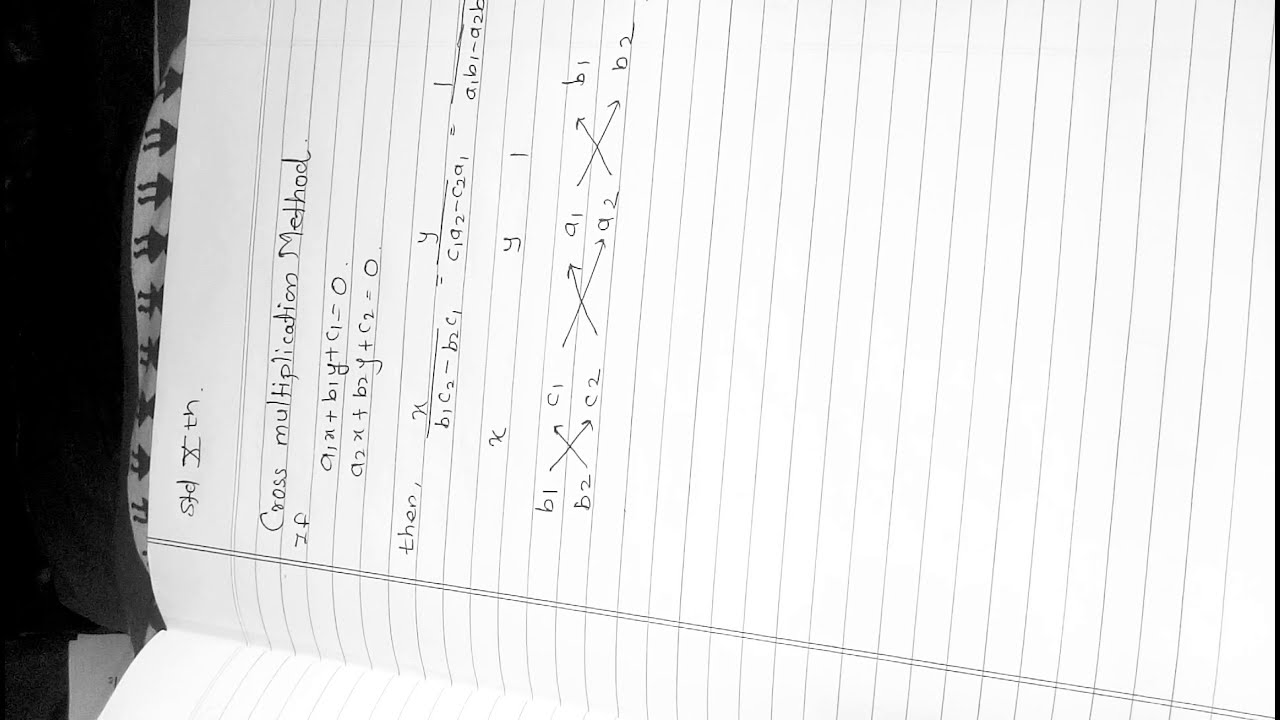 std Xth.
Cross multiplication Method.
If
a1x + b1y + c1 = 0.
a2x + b2y + c2 = 0.
then, x/b1c2 - b2c1 = y/c1a2 - c2a1 = 1/a1b1 - a2b
x y 1
b1 c1 a1 b1
b2 c2 a2 b2